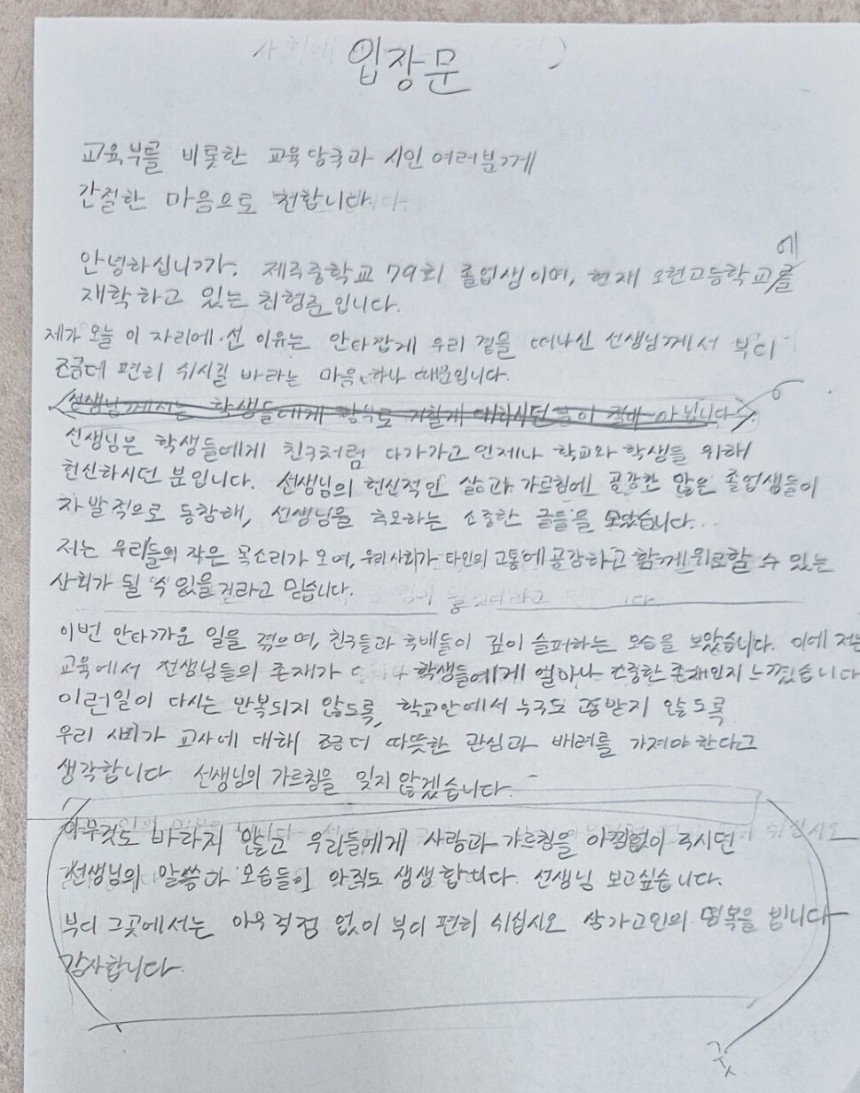 입장문
교육부를 비롯한 교육당국과 시민 여러분께
간절한 마음으로 전합니다.
안녕하십니까. 제주중학교 79회 졸업생이며, 현재 오현고등학교에
재학하고 있는 최형준입니다.
제가 오늘 이 자리에 선 이유는 안타깝게 우리 곁을 떠나신 선생님께서 부디
조금더 편히 쉬시길 바라는 마음 하나 때문입니다.
선생님께서는 학생들에게 함부로 거칠게 대하시던 분이 절대 아닙니다
선생님은 학생들에게 친구처럼 다가가고 언제나 학교와 학생들 위해
헌신하시던 분입니다. 선생님의 헌신적인 삶과 가르침에 공감한 많은 졸업생들이
자발적으로 동참해, 선생님을 추모하는 소중한 글들을 모았습니다.
저는 우리들의 작은 목소리가 모여, 우리 사회가 타인의 고통에 공감하고 함께 위로할 수 있는
사회가 될 수 있을거라고 믿습니다.
이번 안타까운 일을 겪으며, 친구들과 후배들이 깊이 슬퍼하는 모습을 보았습니다. 이에 저는
교육에서 선생님들의 존재가 학생들에게 얼마나 소중한 존재인지 느꼈습니다
이런일이 다시는 반복되지 않도록, 학교안에서 누구도 고통받지 않도록
우리 사회가 교사에 대해 조금 더 따뜻한 관심과 배려를 가져야 한다고
생각합니다 선생님의 가르침을 잊지 않겠습니다.
아무것도 바라지 않고 우리들에게 사랑과 가르침을 아낌없이 주시던
선생님의 말씀과 모습들이 아직도 생생합니다. 선생님 보고싶습니다.
부디 그곳에서는 아무 걱정 없이 부디 편히 쉬십시오 삼가고인의 명복을 빕니다
감사합니다.